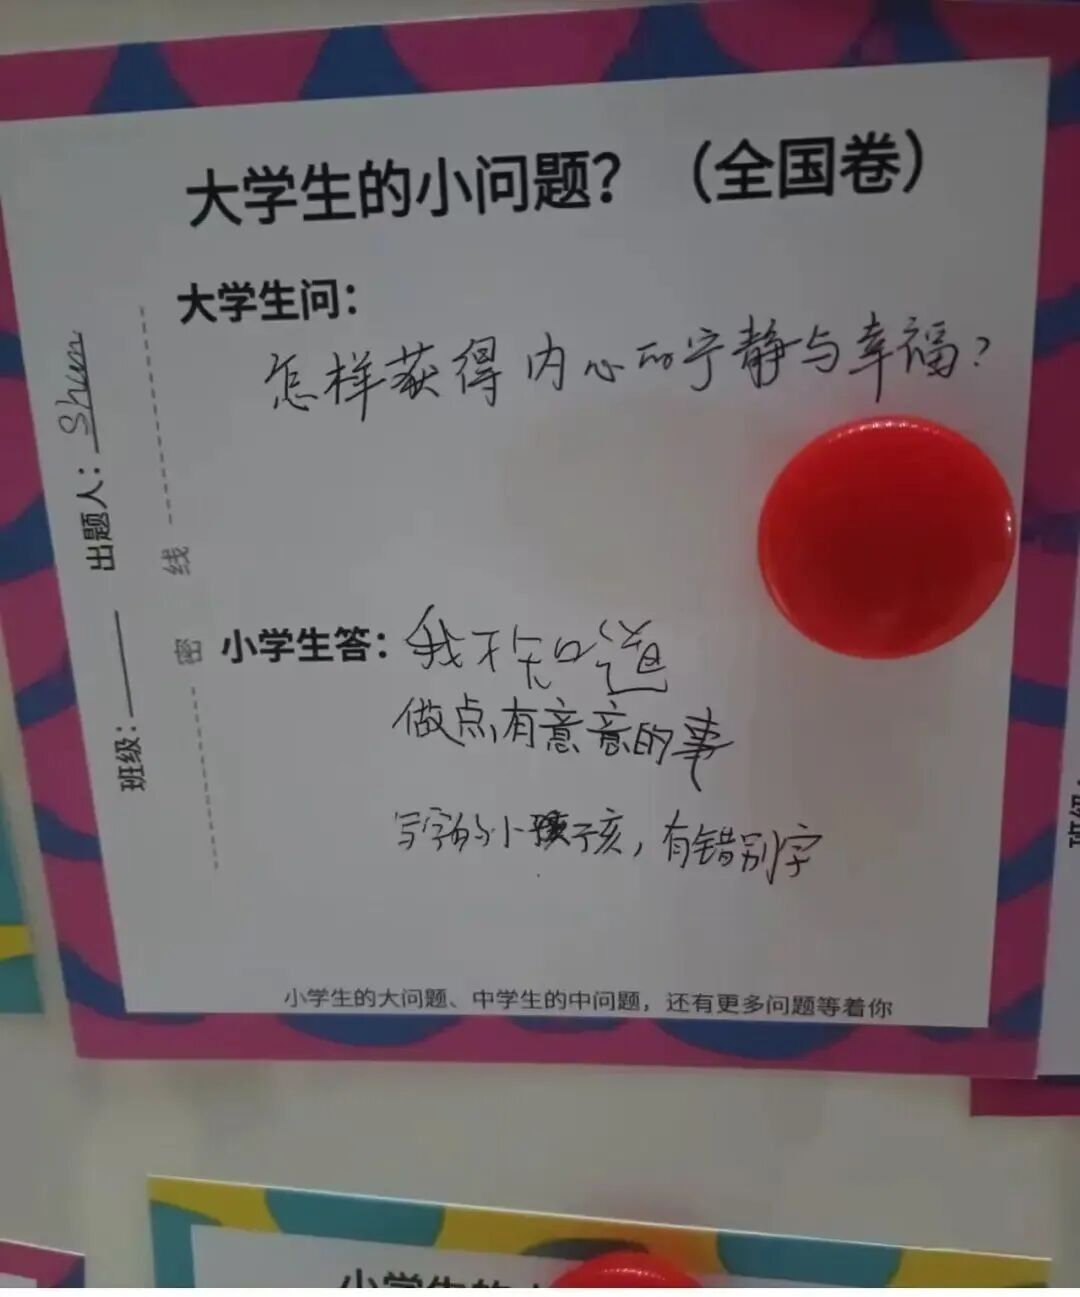 大学生的小问题？（全国卷）
大学生问：
怎样获得内心的宁静与幸福？
出题人：Shun
班级：
密 线
小学生答：我不知道
做点有意意的事
写字的小孩子亥，有错别字
小学生的大问题、中学生的中问题，还有更多问题等着你
班级
小学生的